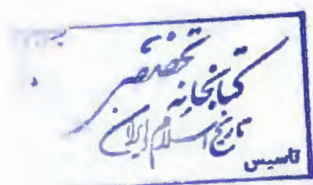 کتابخانه تخصصی
تاریخ اسلام ایران
تاسیس